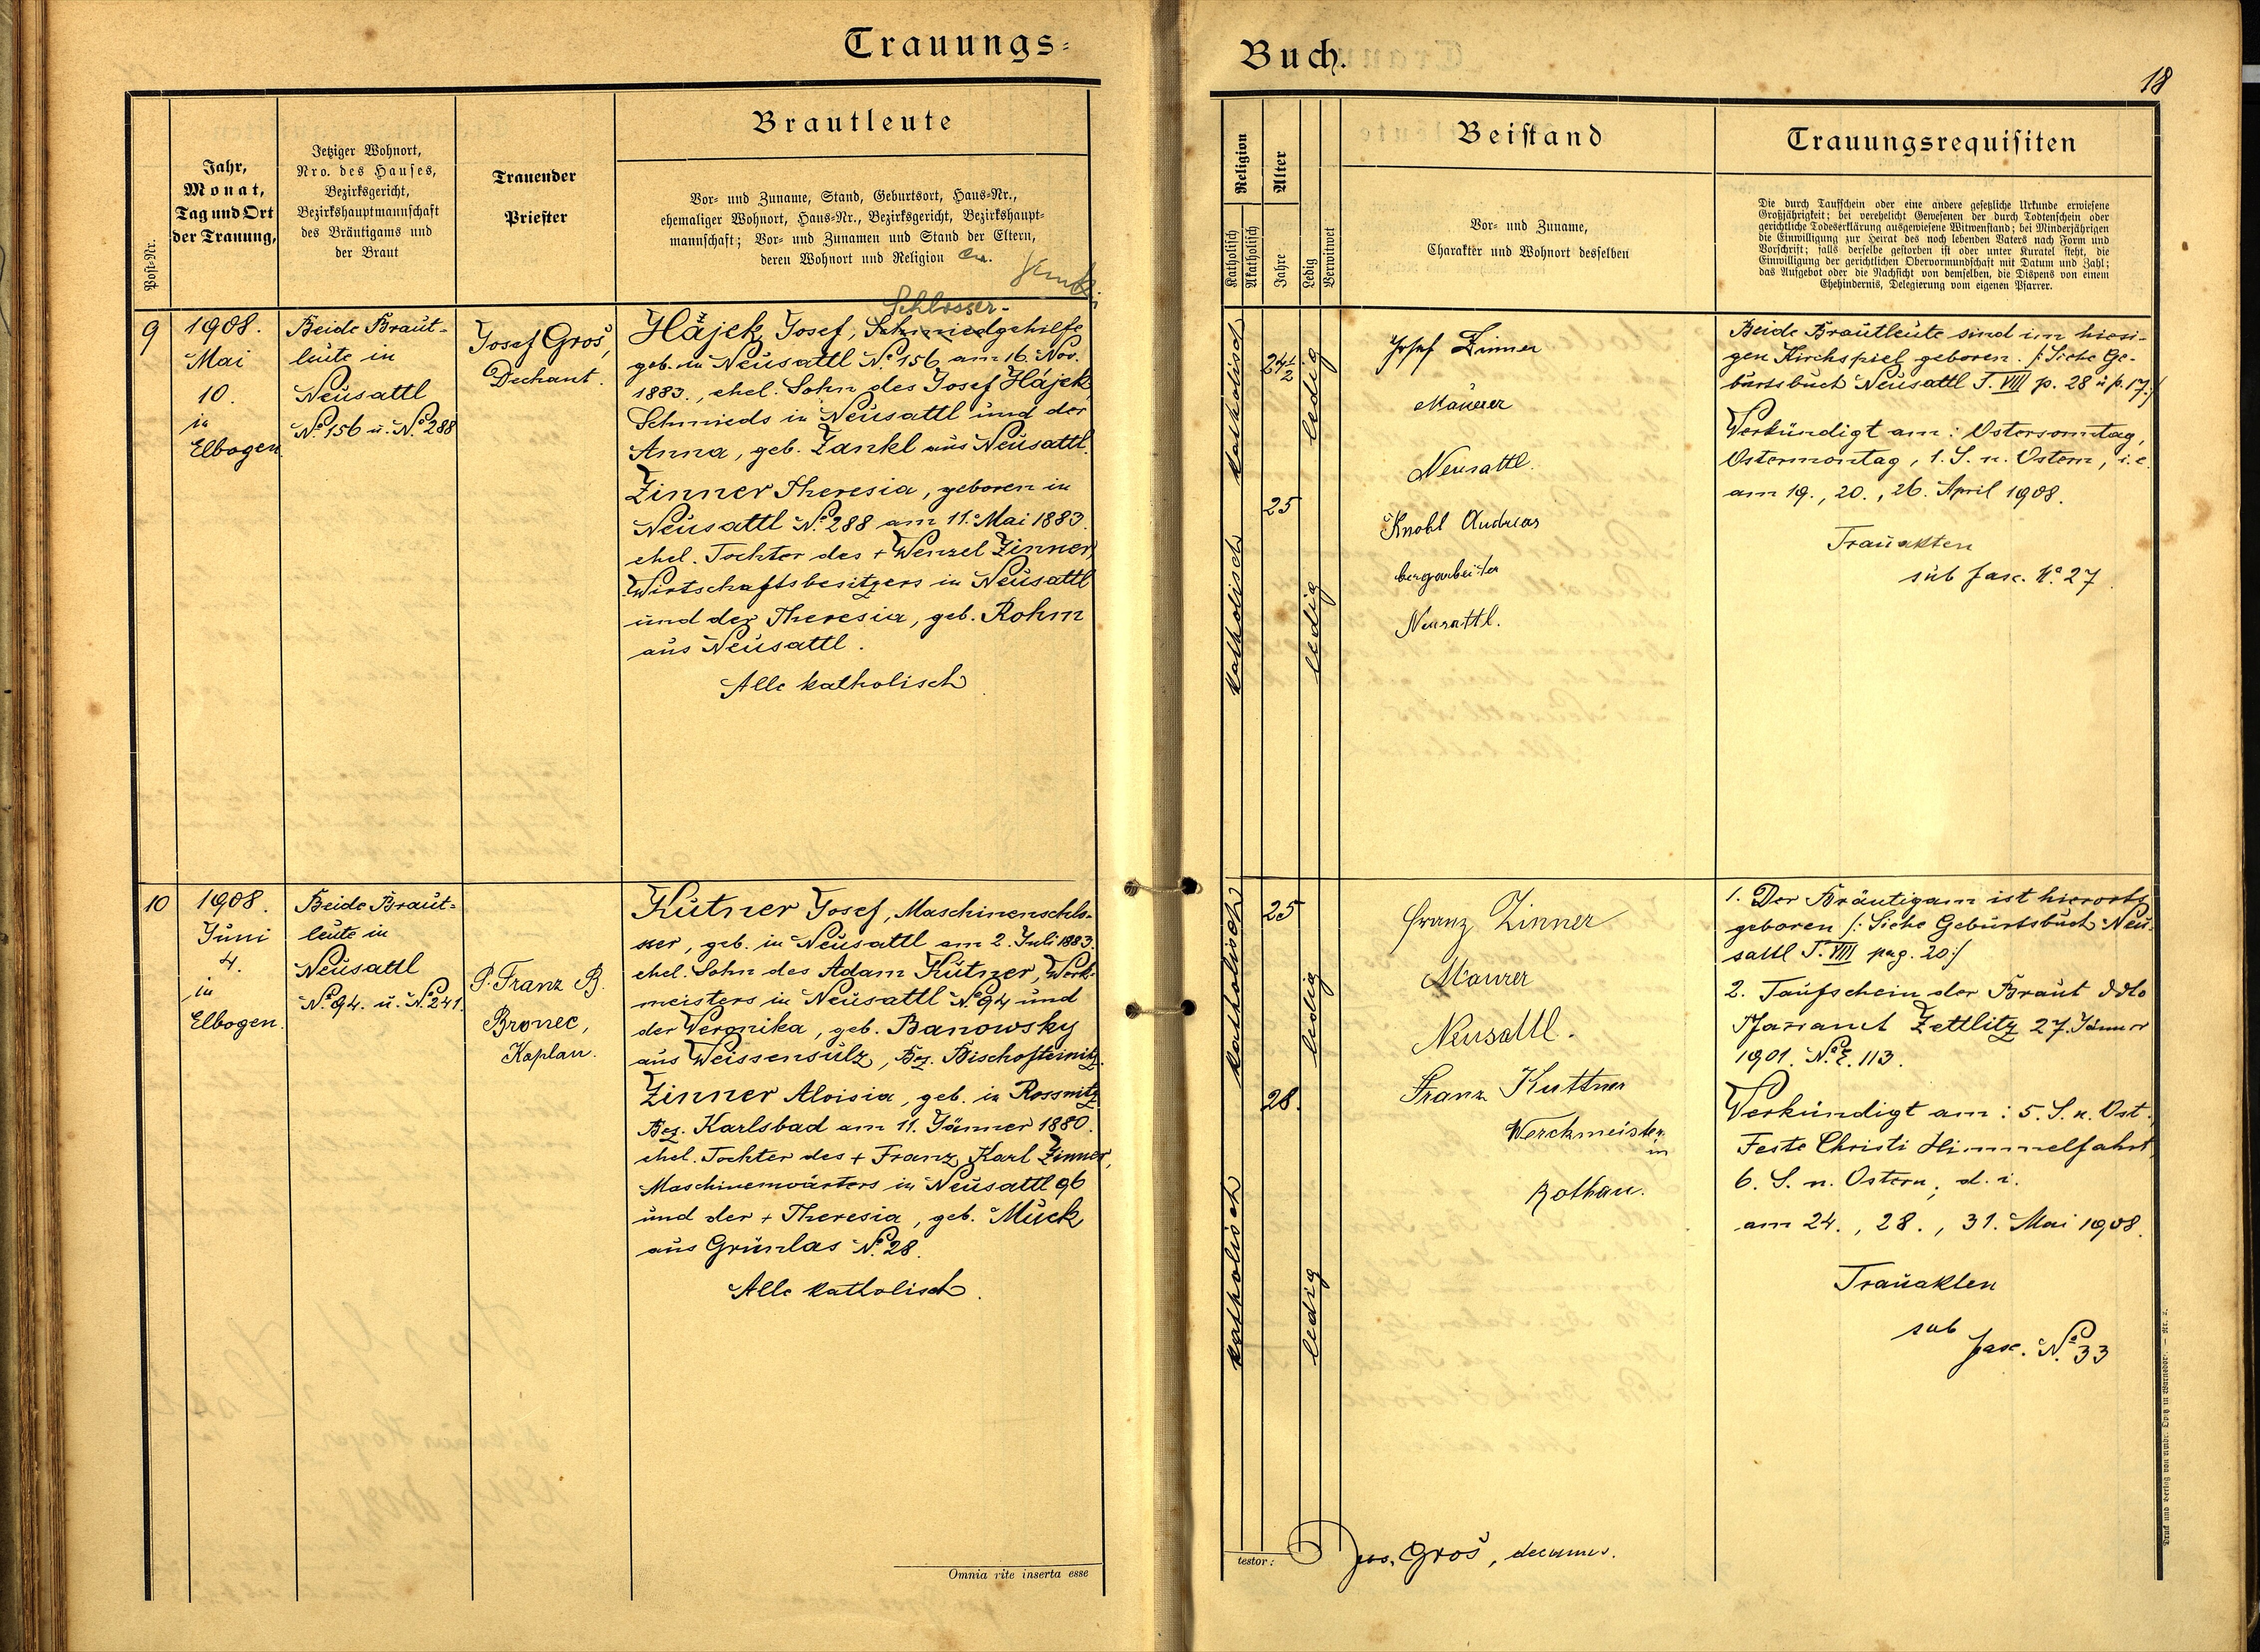 Trauungs-
Buch.
18
Post-Nr.
Jahr,
Monat,
Tag und Ort
der Trauung,
Jetziger Wohnort,
Nro. des Hauses,
Bezirksgericht,
Bezirkshauptmannschaft
des Bräutigams und
der Braut
Trauender
Priester
Brautleute
Vor- und Zuname, Stand, Geburtsort, Haus-Nr.,
ehemaliger Wohnort, Haus-Nr., Bezirksgericht, Bezirkshaupt-
mannschaft; Vor- und Zunamen und Stand der Eltern,
deren Wohnort und Religion
Religion
Katholisch
Akatholisch
Alter
Jahre
Ledig
Verwitwet
Beistand
Vor- und Zuname,
Charakter und Wohnort desselben
Trauungsrequisiten
Die durch Taufschein oder eine andere gesetzliche Urkunde erwiesene
Großjährigkeit; bei verehelicht Gewesenen der durch Todtenschein oder
gerichtliche Todeserklärung ausgewiesene Witwenstand; bei Minderjährigen
die Einwilligung zur Heirat des noch lebenden Vaters nach Form und
Vorschrift; falls derselbe gestorben ist oder unter Kuratel steht, die
Einwilligung der gerichtlichen Obervormundschaft mit Datum und Zahl;
das Aufgebot oder die Nachsicht von demselben, die Dispens von einem
Ehehindernis, Delegierung vom eigenen Pfarrer.
9
1908.
Mai
10.
in
Elbogen
Beide Braut-
leute in
Neusattl
No. 156 u. No. 288
Josef Groš,
Dechant.
Schlosser-
Hájek Josef, Schmiedgehilfe
geb. in Neusattl No. 156 am 16. Nov.
1883., ehel. Sohn des Josef Hájek,
Schmieds in Neusattl und der
Anna, geb. Zankl aus Neusattl.
Zinner Theresia, geboren in
Neusattl No. 288 am 11. Mai 1883.
ehel. Tochter des + Wenzel Zinner,
Wirtschaftsbesitzers in Neusattl
und der Theresia, geb. Rohm
aus Neusattl.
Alle katholisch.
katholisch
24 1/2
ledig
katholisch
25
ledig
Josef Zinner
Maurer
Neusattl.
Knobl Andreas
bergarbeiter
Neusattl.
Beide Brautleute sind im hiesi-
gen Kirchspiel geboren. /: Siehe Ge-
burtsbuch Neusattl T. VIII p. 28 u p. 17 :/
Verkündigt am: Ostersonntag,
Ostermontag, 1. S. n. Ostern, i. e.
am 19., 20., 26. April 1908.
Trauakten
sub fasc. No. 27.
10
1908.
Juni
4.
in
Elbogen.
Beide Braut-
leute in
Neusattl
No. 94. u. No. 241.
P. Franz B.
Bronec,
Kaplan.
Kutner Josef, Maschinenschlo-
sser, geb. in Neusattl am 2. Juli 1883.
ehel. Sohn des Adam Kutner, Werk-
meisters in Neusattl No. 94 und
der Veronika, geb. Banowsky
aus Weissensulz, Bez. Bischofteinitz.
Zinner Aloisia, geb. in Rossnitz
Bez. Karlsbad am 11. Jänner 1880.
ehel. Tochter des + Franz Karl Zinner,
Maschinenwärters in Neusattl 96
und der + Theresia, geb. Muck
aus Grünlas No. 28.
Alle katholisch.
katholisch
25
ledig
katholisch
28.
ledig
Franz Zinner
Maurer
Neusattl.
Franz Kuttner
Werckmeister
in
Rothau.
1. Der Bräutigam ist hierorts
geboren /: Siehe Geburtsbuch Neu-
sattl T. VIII pag. 20 :/
2. Taufschein der Braut ddto
Pfarramt Zettlitz 27. Jänner
1901. No. E. 113.
Verkündigt am: 5. S. n. Ost.,
Feste Christi Himmelfahrt,
6. S. n. Ostern, d. i.
am 24., 28., 31. Mai 1908.
Trauakten
sub
fasc. No. 33
Omnia rite inserta esse
testor:
Jos. Groš, decanus.